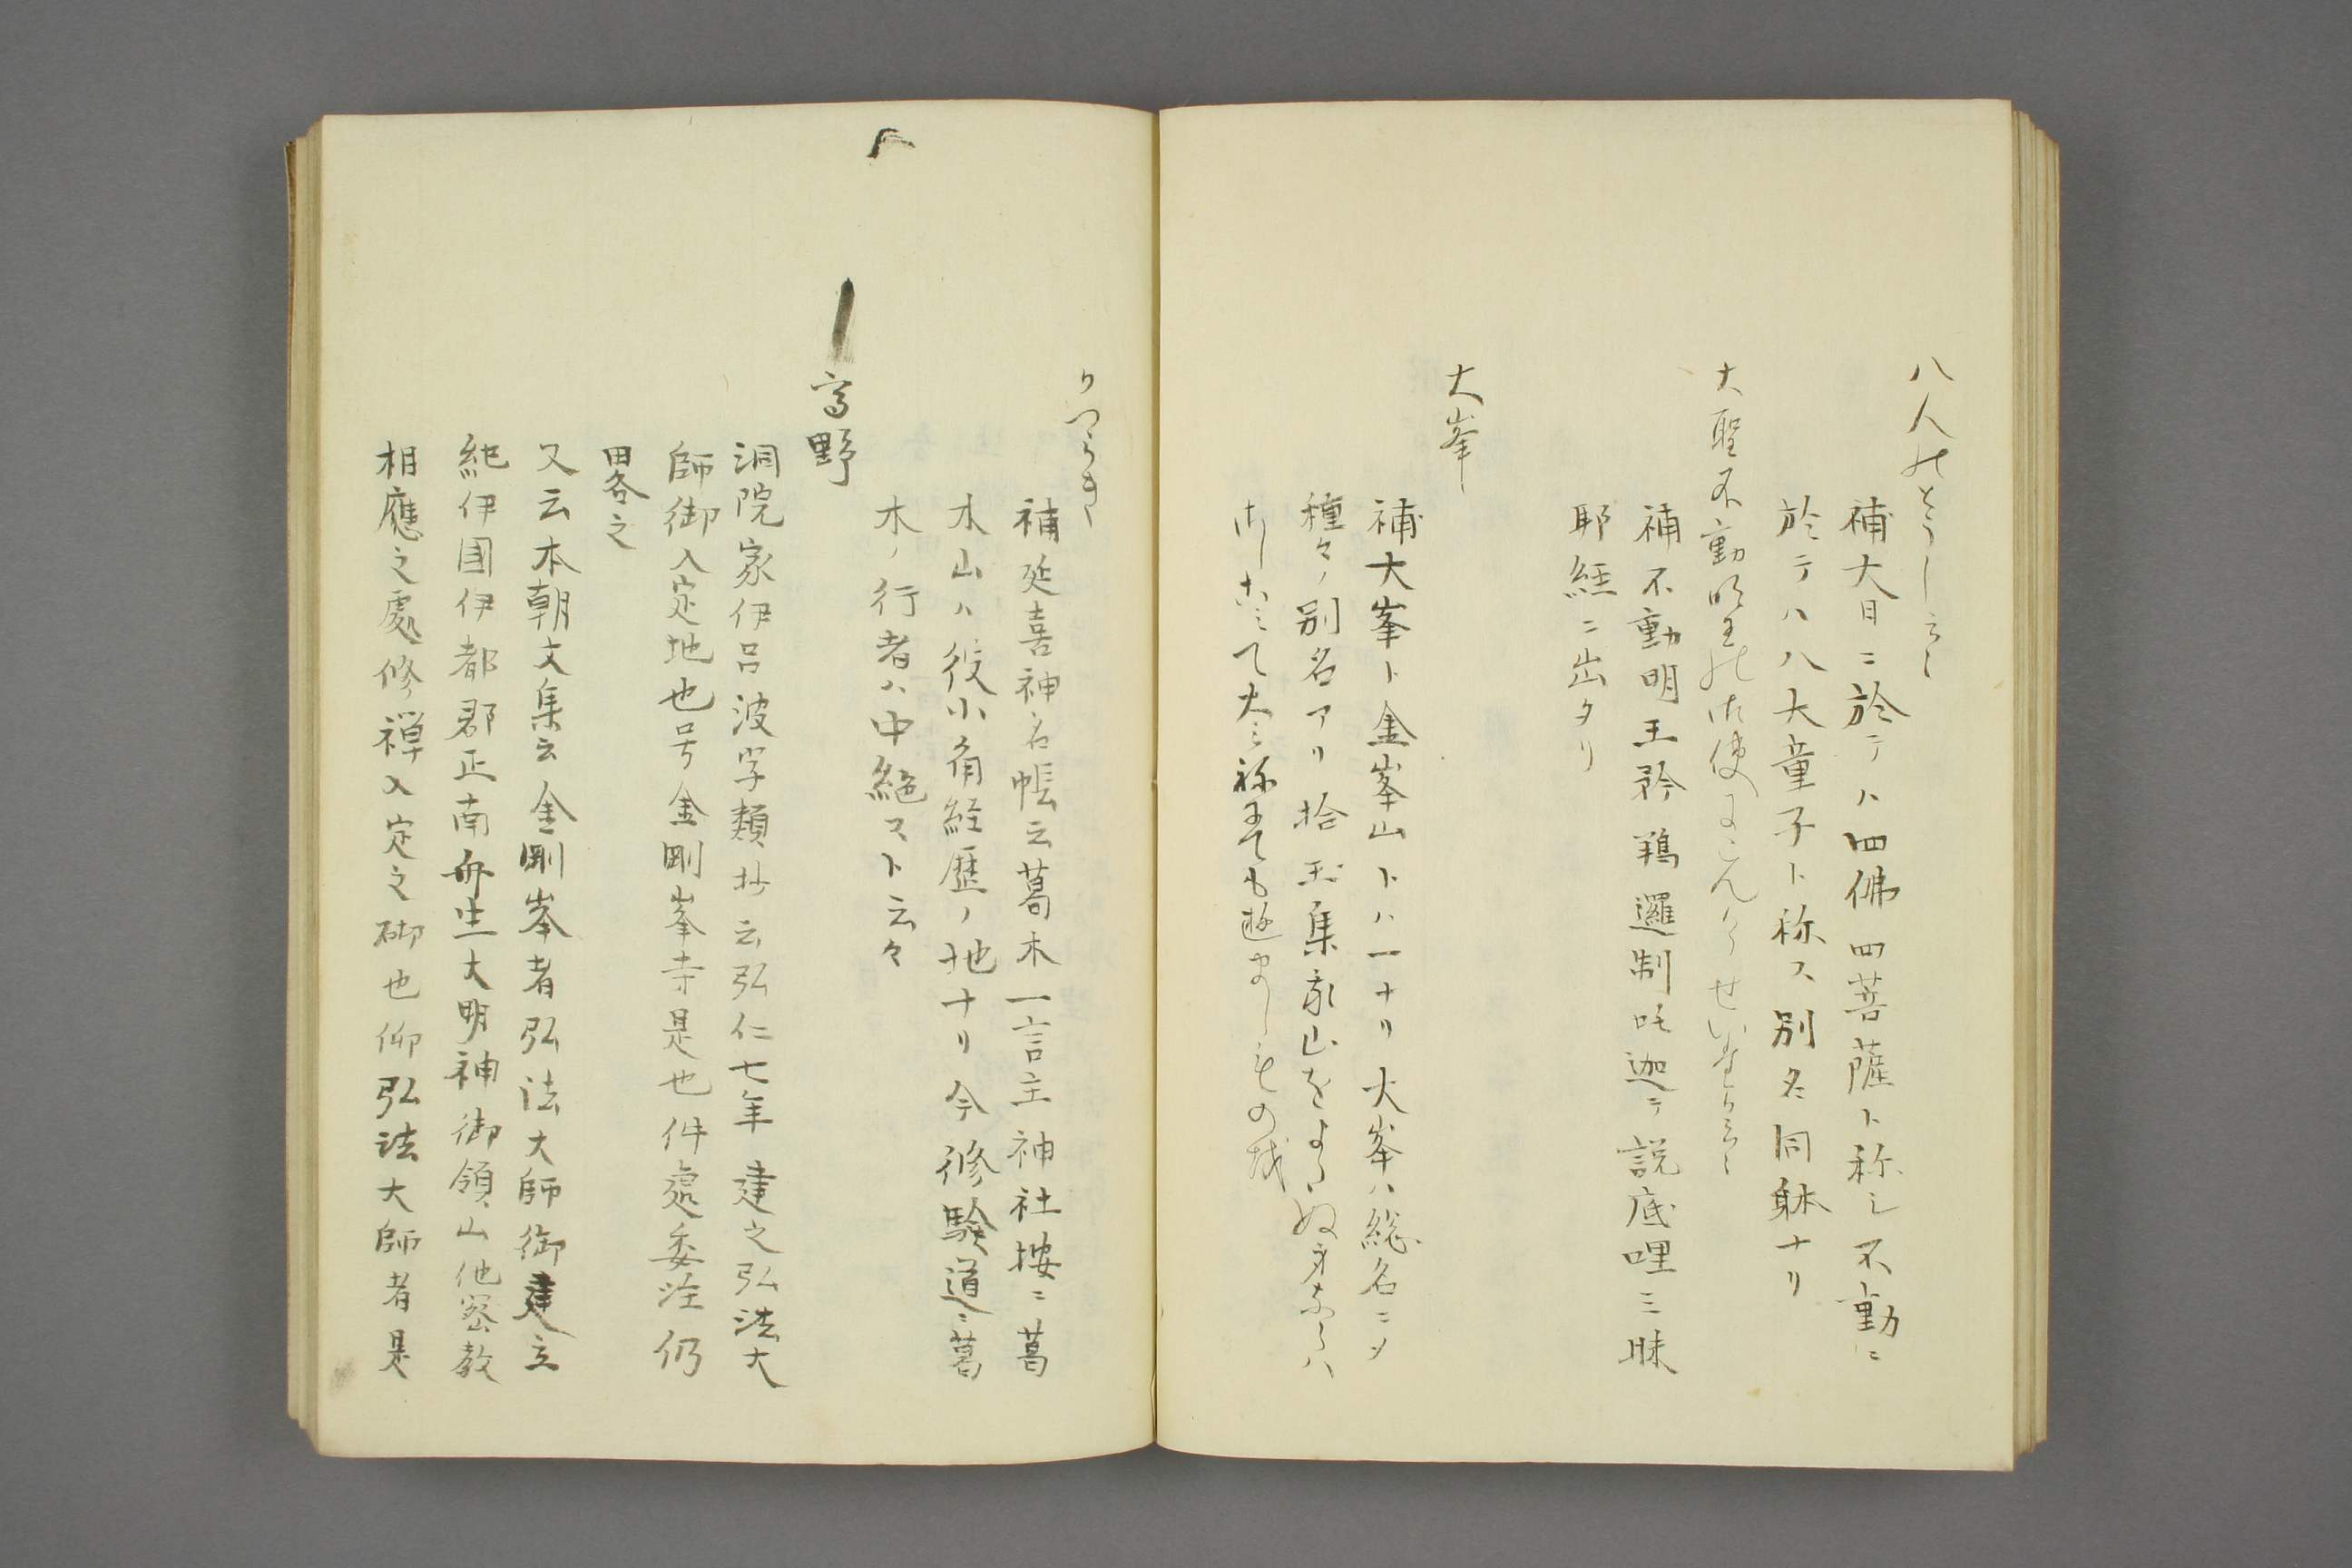 八人のとうし云々
補大日ニ於テハ四佛四菩薩ト称シ不動ニ
於テハ八大童子ト称ス別名同躰ナリ
大聖不動明王の御使
補不動明王矜羯邏制吒迦ヲ説底哩三昧
耶経ニ出タリ
大峯
補大峯ト金峯山トハ一ナリ大峯ハ総名ニメ
種々ノ別名アリ拾玉集
かつらき
補延喜神名帳云葛木一言主神社按ニ葛
木山ハ役小角経歴ノ地ナリ今修験道ニ葛
木ノ行者ハ中絶スト云々
高野
洞院家伊呂波字類抄云弘仁七年建之弘法大
師御入定地也号金剛峯寺是也件處委注仍
畧之
又云本朝文集云金剛峯者弘法大師御建立
紀伊國伊都郡正南丹生大明神御領山也密教
相應之處修禅入定之砌也仰弘法大師者是